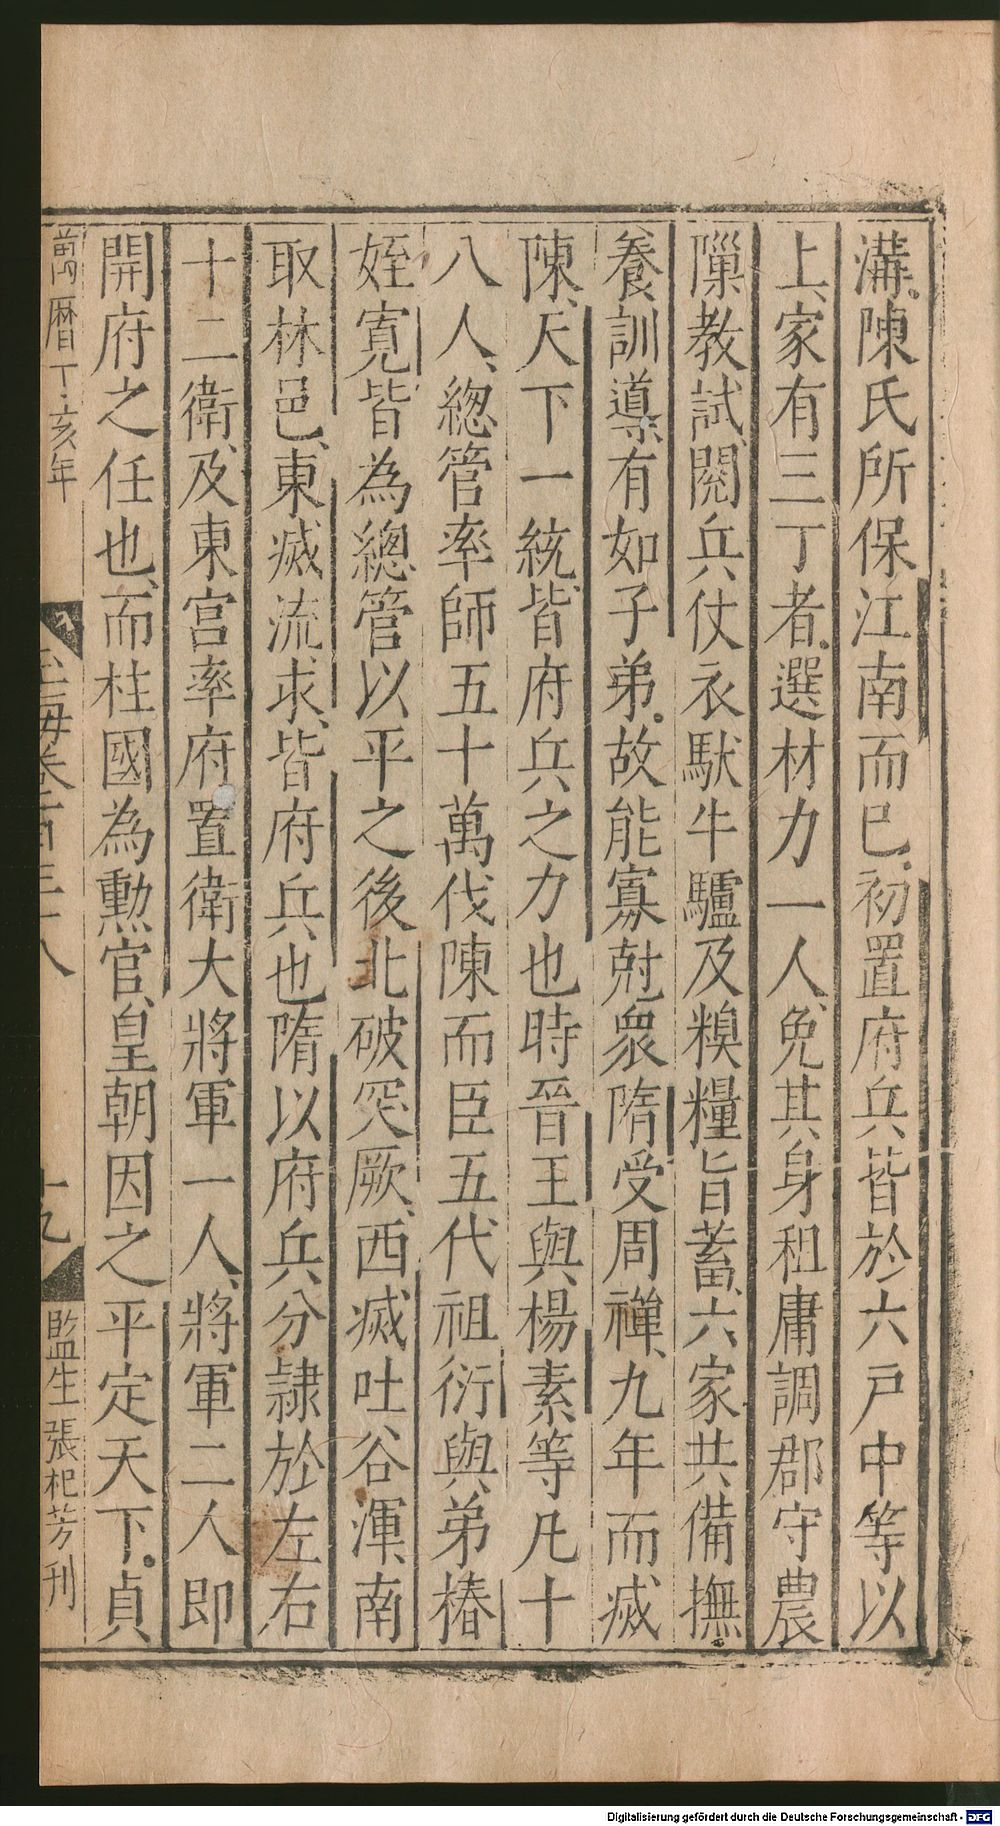 溝陳氏所保江南而已初置府兵皆於六戶中等以
上家有三丁者選材力一人免其身租庸調郡守農
隟教試閱兵仗衣馱牛驢及糗糧旨蓄六家共備撫
養訓導有如子弟故能寡尅衆隋受周禪九年而滅
陳天下一統皆府兵之力也時晉王與楊素等凡十
八人總管率師五十萬伐陳而臣五代祖衍與弟椿
姪寬皆為總管以平之後北破突厥西滅吐谷渾南
取林邑東滅流求皆府兵也隋以府兵分隷於左右
十二衛及東宮率府置衛大將軍一人將軍二人即
開府之任也而柱國為勲官皇朝因之平定天下貞
萬曆丁亥年
玉海卷一百三十八
十九
監生張杞芳刊
Digitalisierung gefördert durch die Deutsche Forschungsgemeinschaft - DFG